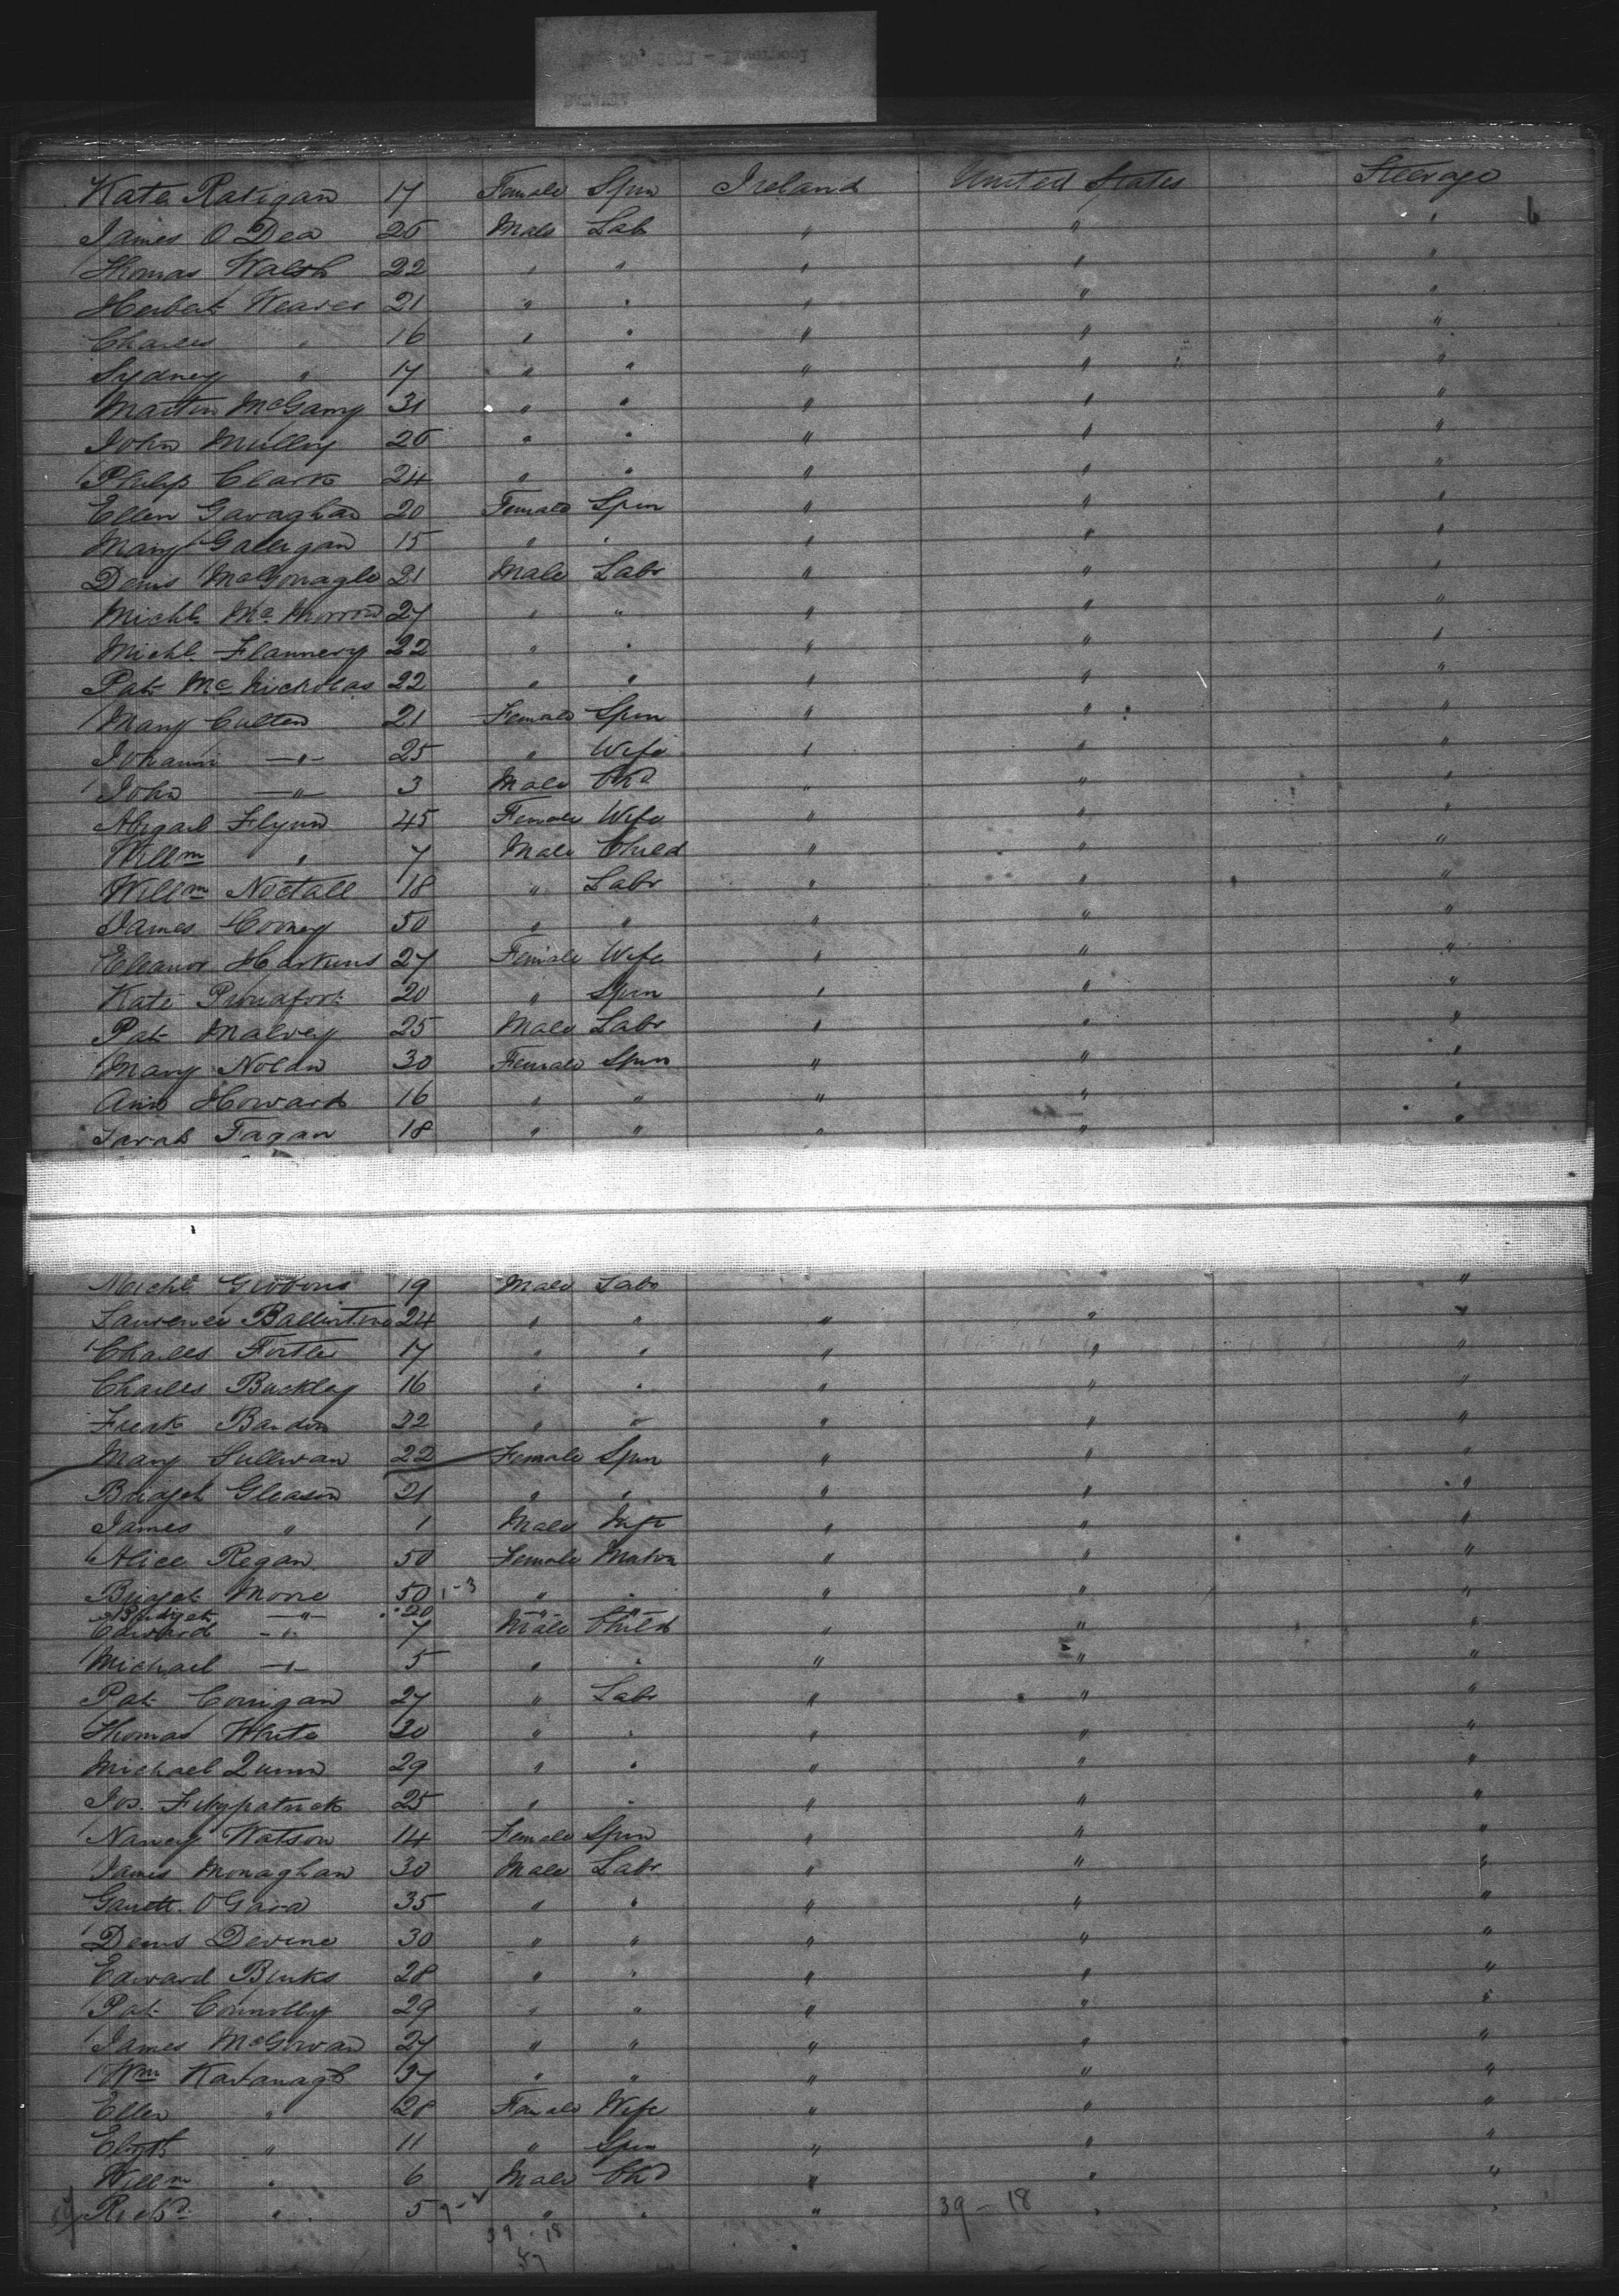 Kate Ratigan 17 Female Spin Ireland United States Steerage
James O Dea 26 Male Lab " " " 6
Thomas Walsh 22 " " " " "
Herbert Weaver 21 " " " " "
Charles " 16 " " " " "
Sydney " 17 " " " " "
Martin McGarry 31 " " " " "
John Mullig 26 " " " " "
Philip Clark 24 " " " " "
Ellen Gavaghan 20 Female Spin " " "
Mary Galligan 15 " " " " "
Denis McGonagle 21 Male Labr " " "
Michl. Mc Morrow 27 " " " " "
Michl. Flannery 22 " " " " "
Pat Mc Nicholas 22 " " " " "
Mary Culten 21 Female Spin " " "
Johann " 25 " Wife " " "
John " 3 Male Chd " " "
Abigail Flynn 45 Female Wife " " "
Willm " 7 Male Child " " "
Willm Noctall 18 " Labr " " "
James Comey 50 " " " " "
Eleanor Harkins 27 Female Wife " " "
Kate 20 " Spin " " "
Pat Malvey 25 Male Labr " " "
Mary Nolan 30 Female Spin " " "
Ann Howard 16 " " " " "
Sarah Fagan 18 " " " " "
Michl Gibbons 19 Male Labr "
Laurence 24 " " " " "
Charles 17 " " " " "
Charles Buckley 16 " " " " "
Fredk 22 " " " " "
Mary Sullivan 22 Female Spin " " "
Bridget Gleason 21 " " " " "
James " 1 Male Inft " " "
Alice Regan 50 Female Matron " " "
Bridget Morre 50 1-3 " " " " "
Bridget " 20 " "
Edward " 7 Male Child " " "
Michael " 5 " " " " "
Pat Corrigan 27 " Labr " " "
Thomas White 30 " " " " "
Michael Quinn 29 " " " " "
Jos. Fitzpatrick 25 " " " " "
Nancy Watson 14 Female Spin " " "
James Monaghan 30 Male Labr " " "
Garrett O Gara 35 " " " " "
Denis Devine 30 " " " " "
Edward Binks 28 " " " " "
Pat Connolly 29 " " " " "
James McGowan 27 " " " " "
Wm Kavanagh 37 " " " " "
Ellen " 28 Female Wife " " "
Elizth " 11 " Spin " " "
Willm " 6 Male Chd " " "
Richd " 5 " " " 39-18 " "
39-18
57